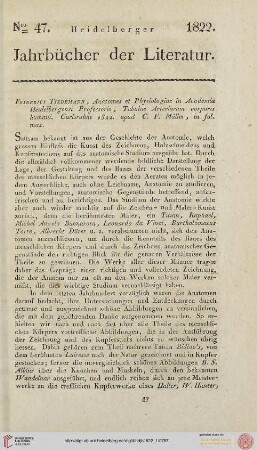 No. 47.
Heidelberger
1822.
Jahrbücher der Literatur.
Friderici Tiedemann, Anatomes et Physiologiae in Academia
Heidelbergensi Professoris, Tabulae Arteriarum corporis
humani. Carlsruhae 1822. apud C. F. Müller, in fol.
max.
bekannt ist aus der Geschichte der Anatomie, welch
grossen Einfluss die Kunst des Zeichnens, Holzschneidens und
Kupferstechens auf das anatomische Studium ausgeübt hat. Durch
die allmählich vollkommener werdende bildliche Darstellung der
Lage, der Gestaltung und des Baues der verschiedenen Theile
des menschlichen Körpers wurde es den Aerzten möglich in je-
dem Augenblick, und ohne Leichname, Anatomie zu studieren,
und Vorstellungen, anatomische Gegenstände betreffend, aufzu-
frischen und zu versinnlichen. Das anatomische Studium wirkte
aber auch wieder mächtig auf die Zeichen- und Maler-Kunst
zurück, denn die berühmtesten Maler, ein Titian, Raphael,
Michel Angelo Buonaroti, Leonardo da Vinci, Bartholomaeus
Torre, Albrecht Dürer u. a. verabsäumten nicht, sich den Ana-
tomen anzuschliessen, um durch die Kenntniss des Baues des
menschlichen Körpers und durch das Zeichnen anatomischer Ge-
genstände den richtigen Blick für die genauen Verhältnisse der
Theile zu gewinnen. Die Werke aller dieser Künstler tragen
daher das Gepräge einer richtigen und vollendeten Zeichnung,
die der Anatom nur zu oft an den Werken solcher Maler ver-
misst, die dies wichtige Studium vernachlässigt haben.
In dem letzten Jahrhundert vorzüglich waren die Anatomen
darauf bedacht, ihre Untersuchungen und Entdeckungen durch
getreue und ausgezeichnet schöne Abbildungen zu versinnlichen,
und so besitzen wir nun auch fast über alle Theile des mensch-
lichen Körpers vortreffliche Abbildungen, die in der Ausführung
der Zeichnung und des Kupferstichs nichts zu wünschen übrig
lassen. Dahin gehören die Tafeln Bidloo's, von
dem berühmten Lairesse nach der Natur gezeichnet und in Kupfer
gestochen; ferner die unvergleichlich schönen Abbildungen B. S.
Albin über die Knochen und Muskeln, durch den
Wandelaar ausgeführt, und endlich reihen sich an jene Meister-
werke an die trefflichen Kupferwerke eines Haller, W. Hunter,
47